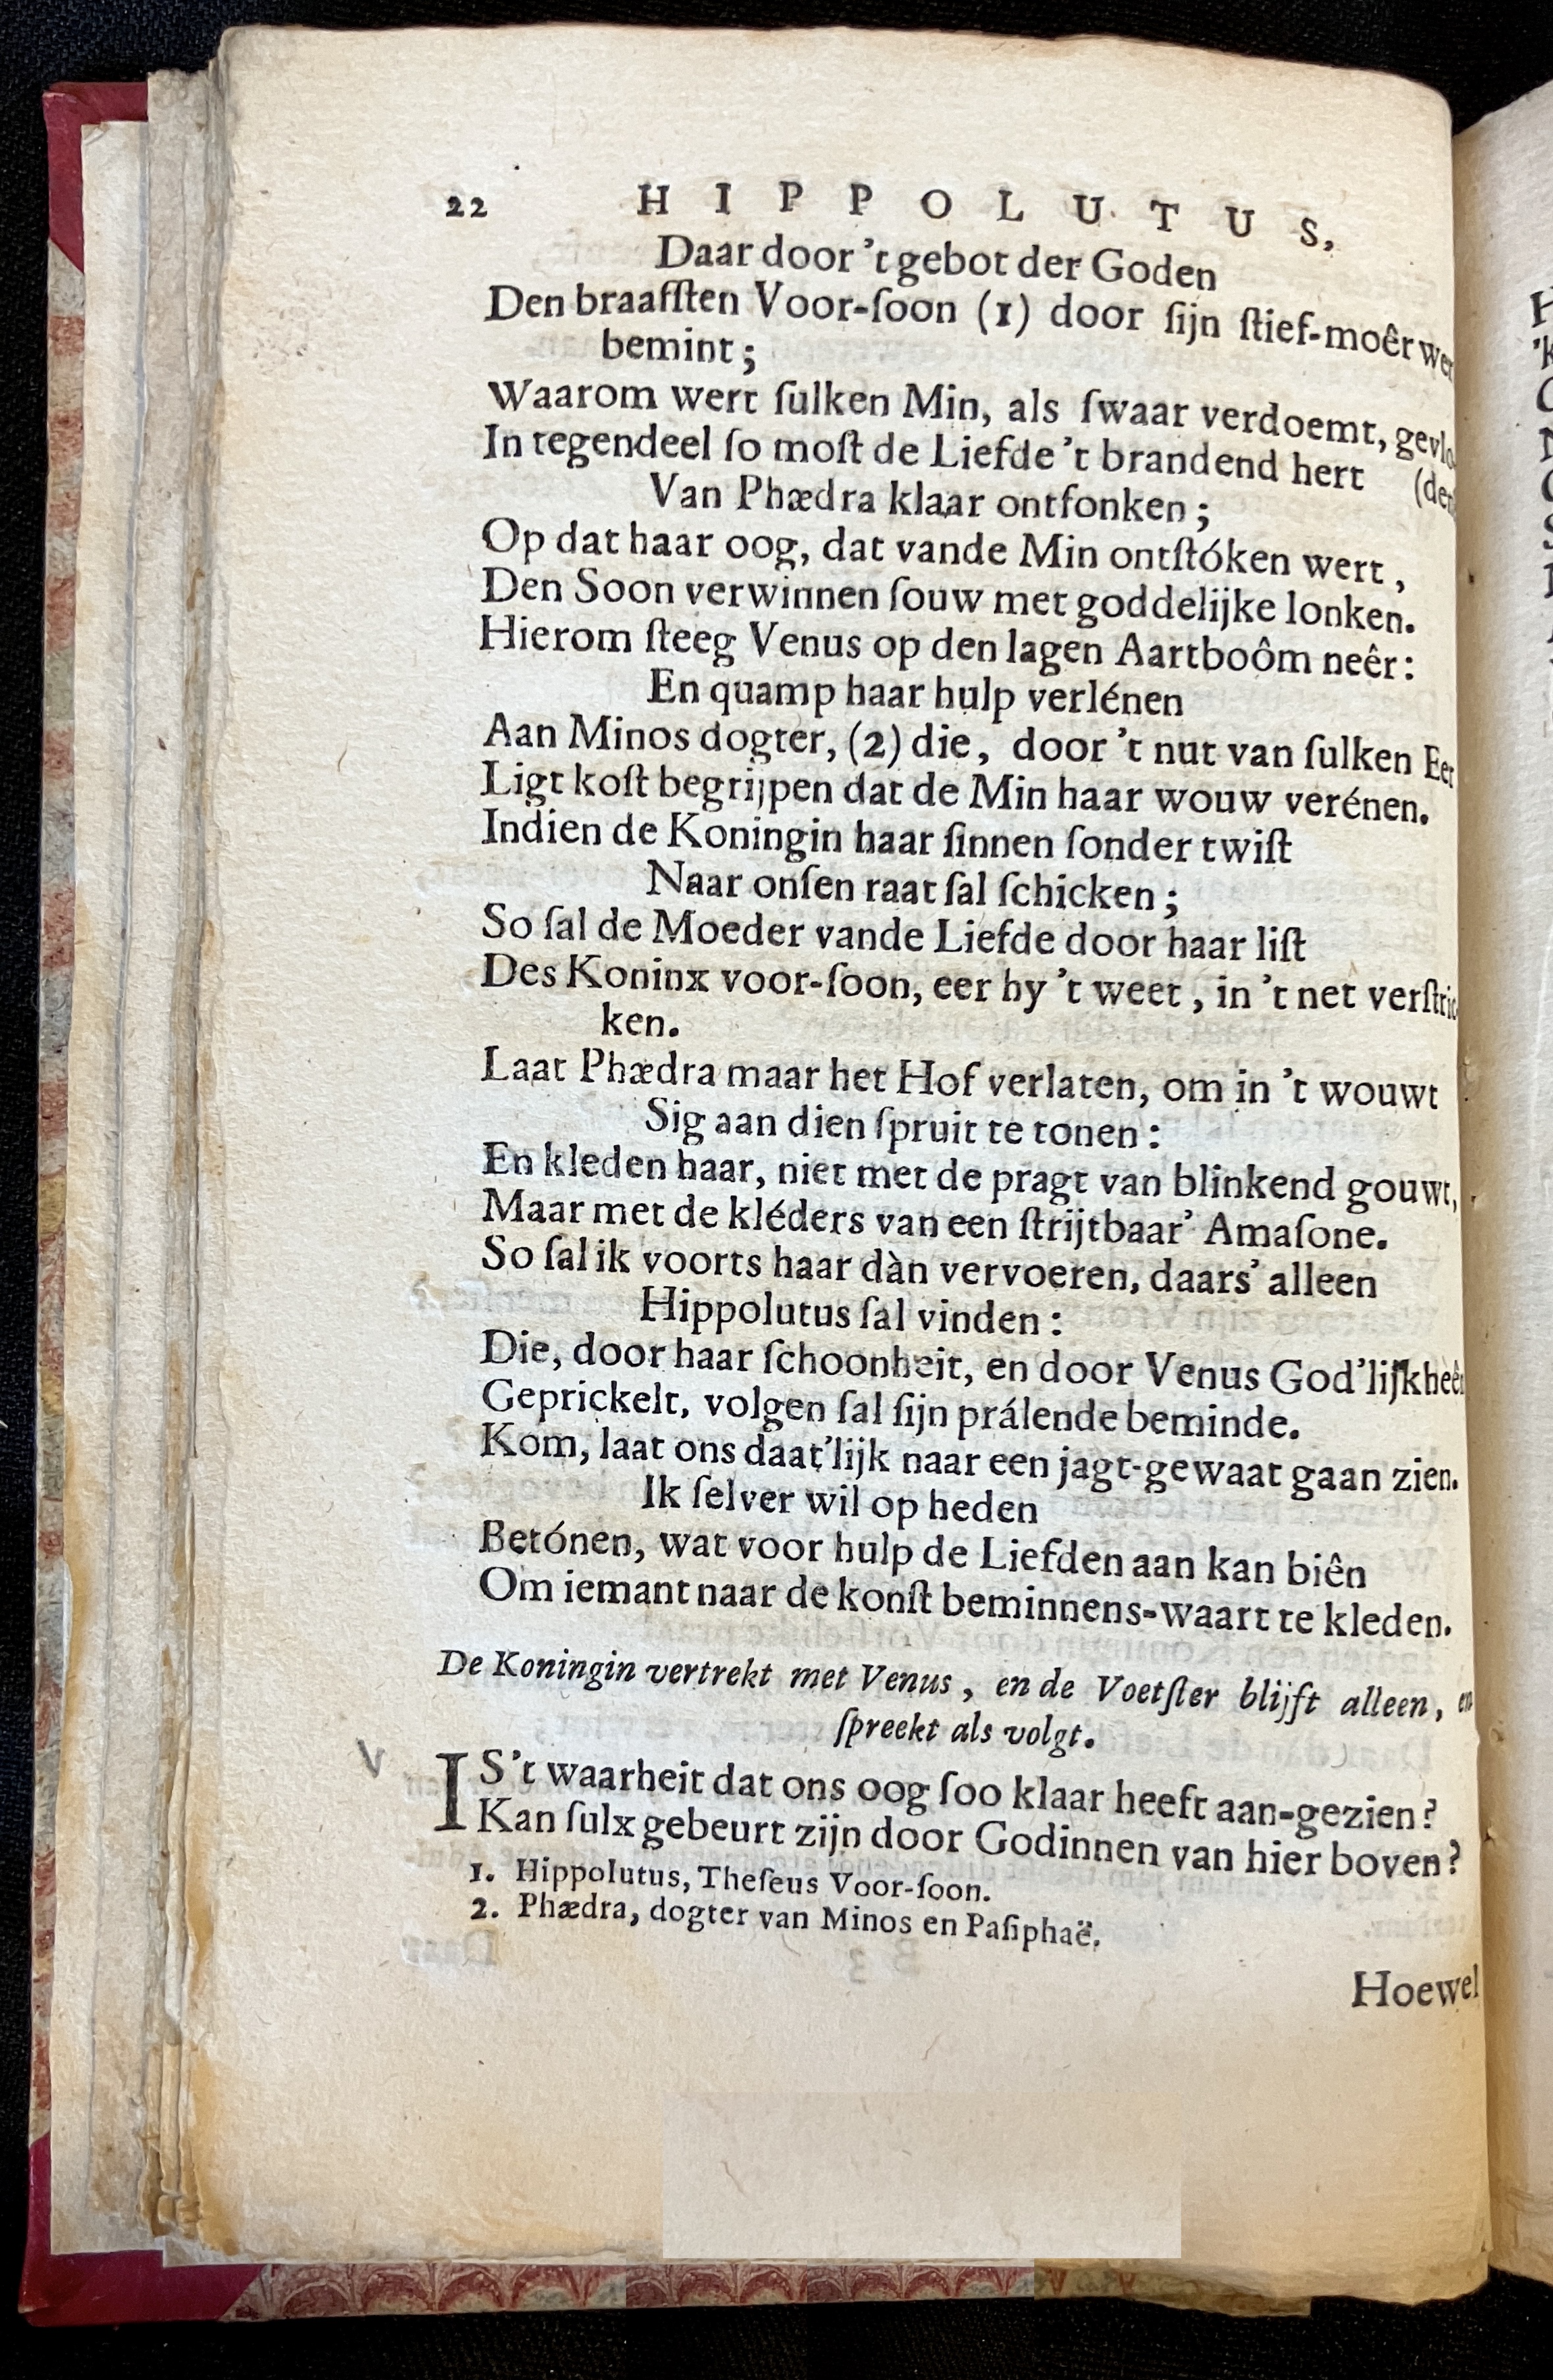 22 HIPPOLUTUS,
Daar door 't gebot der Goden
Den braafſten Voor-ſoon (1) door ſijn ſtief-moêr wer
bemint;
Waarom wert ſulken Min, als ſwaar verdoemt, gevlo
In tegendeel ſo moſt de Liefde 't brandend hert (den
Van Phædra klaar ontfonken;
Op dat haar oog, dat vande Min ontſtóken wert,
Den Soon verwinnen ſouw met goddelijke lonken.
Hierom ſteeg Venus op den lagen Aartboôm neêr:
En quamp haar hulp verlénen
Aan Minos dogter, (2) die, door 't nut van ſulken Eer
Ligt koſt begrijpen dat de Min haar wouw verénen.
Indien de Koningin haar ſinnen ſonder twiſt
Naar onſen raat ſal ſchicken;
So ſal de Moeder vande Liefde door haar liſt
Des Koninx voor-ſoon, eer hy 't weet, in 't net verſtric
ken.
Laat Phædra maar het Hof verlaten, om in 't wouwt
Sig aan dien ſpruit te tonen:
En kleden haar, niet met de pragt van blinkend gouwt,
Maar met de kléders van een ſtrijtbaar' Amaſone.
So ſal ik voorts haar dàn vervoeren, daars' alleen
Hippolutus ſal vinden:
Die, door haar ſchoonheit, en door Venus God'lijkheên
Geprickelt, volgen ſal ſijn prálende beminde.
Kom, laat ons daat'lijk naar een jagt-gewaat gaan zien.
Ik ſelver wil op heden
Betónen, wat voor hulp de Liefden aan kan biên
Om iemant naar de konſt beminnens-waart te kleden.
De Koningin vertrekt met Venus, en de Voetſter blijft alleen, en
ſpreekt als volgt.
IS't waarheit dat ons oog ſoo klaar heeft aan-gezien?
Kan ſulx gebeurt zijn door Godinnen van hier boven?
1. Hippolutus, Theſeus Voor-ſoon.
2. Phædra, dogter van Minos en Paſiphaë.
Hoewel